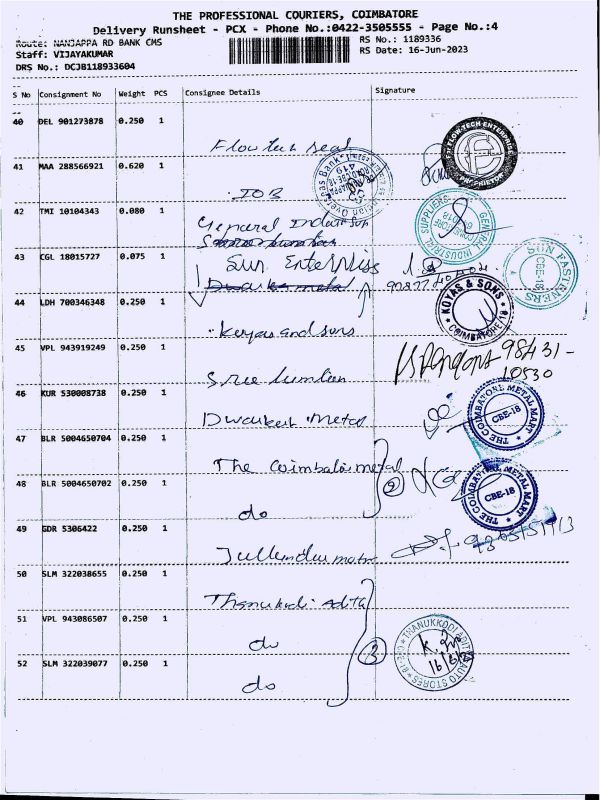 THE PROFESSIONAL COURIERS, COIMBATORE
Delivery Runsheet - PCX - Phone No.:0422-3505555 - Page No.:4
Route: NANJAPPA RD BANK CMS
RS No.: 1189336
Staff: VIJAYAKUMAR
RS Date: 16-Jun-2023
DRS No.: DCJB118933604
S No Consignment No Weight PCS Consignee Details Signature
40 DEL 901273878 0.250 1
Flow tech seal
41 MAA 288566921 0.620 1
IOB
42 TMI 10104343 0.080 1
General Industrial
43 CGL 18015727 0.075 1
Sun Enterpriss
Dwarka metal
44 LDH 700346348 0.250 1
Koyas and sons
KOYAS & SONS
COIMBATORE-18
SUN FASTENERS
CBE-18
GENERAL INDUSTRIAL SUPPLIERS
45 VPL 943919249 0.250 1
98431-
10530
Sree
46 KUR 530008738 0.250 1
Dwarkesh Metal
THE COIMBATORE METAL MART
CBE-18
47 BLR 5004650704 0.250 1
The Coimbatore metal
48 BLR 5004650702 0.250 1
2
do
THE COIMBATORE METAL MART
CBE-18
49 GDR 5306422 0.250 1
Jullundur motor
50 SLM 322038655 0.250 1
Thanukodi Adita
51 VPL 943086507 0.250 1
do
3
THANUKKODI ADITYA AUTO STORES
52 SLM 322039077 0.250 1
do